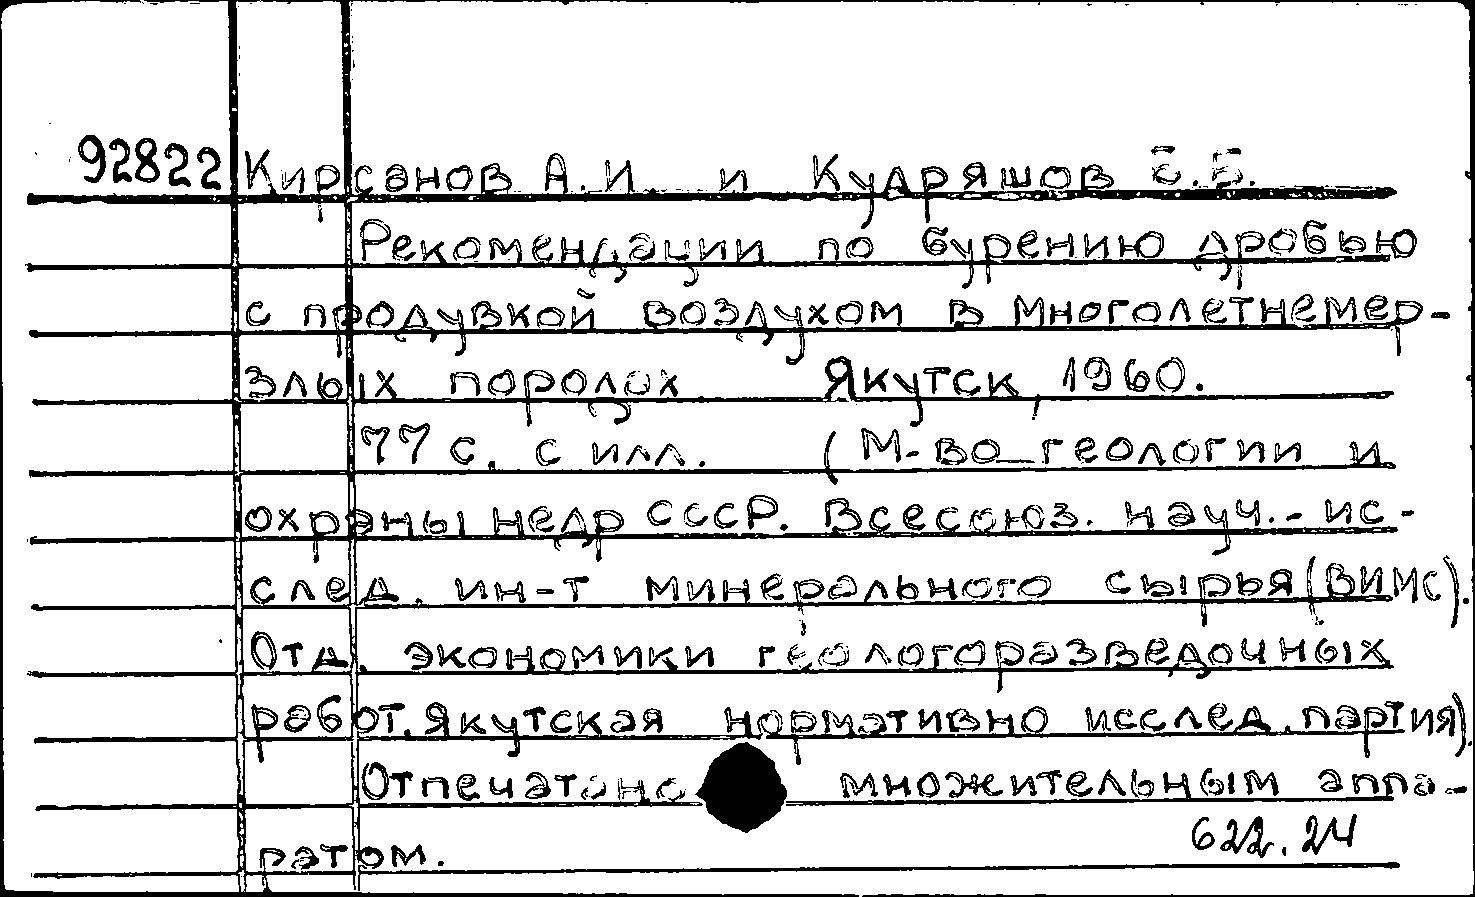 92822 Кирсанов А.И. и Кудряшов Б.Б.
Рекомендации по бурению дробью
с продувкой воздухом в многолетнемер-
злых породах Якутск, 1960.
77 с. с илл. (М-во геологии и
охраны недр СССР. Всесоюз. науч.-ис-
след. ин-т минерального сырья (ВИМС).
Отд. экономики геологоразведочных
работ. Якутская нормативно исслед. партия).
Отпечатано множительным аппа-
ратом.
622.24